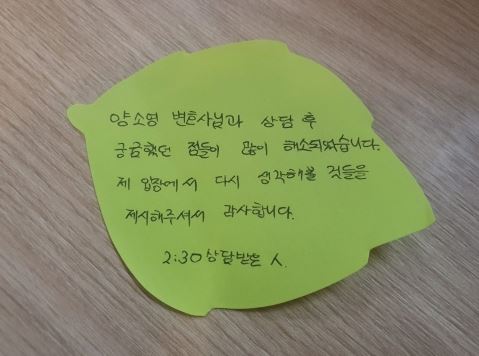 양소영 변호사님과 상담 후
궁금했던 점들이 많이 해소되었습니다.
제 입장에서 다시 생각해볼 것들을
제시해주셔서 감사합니다.
2:30 상담받은 人.